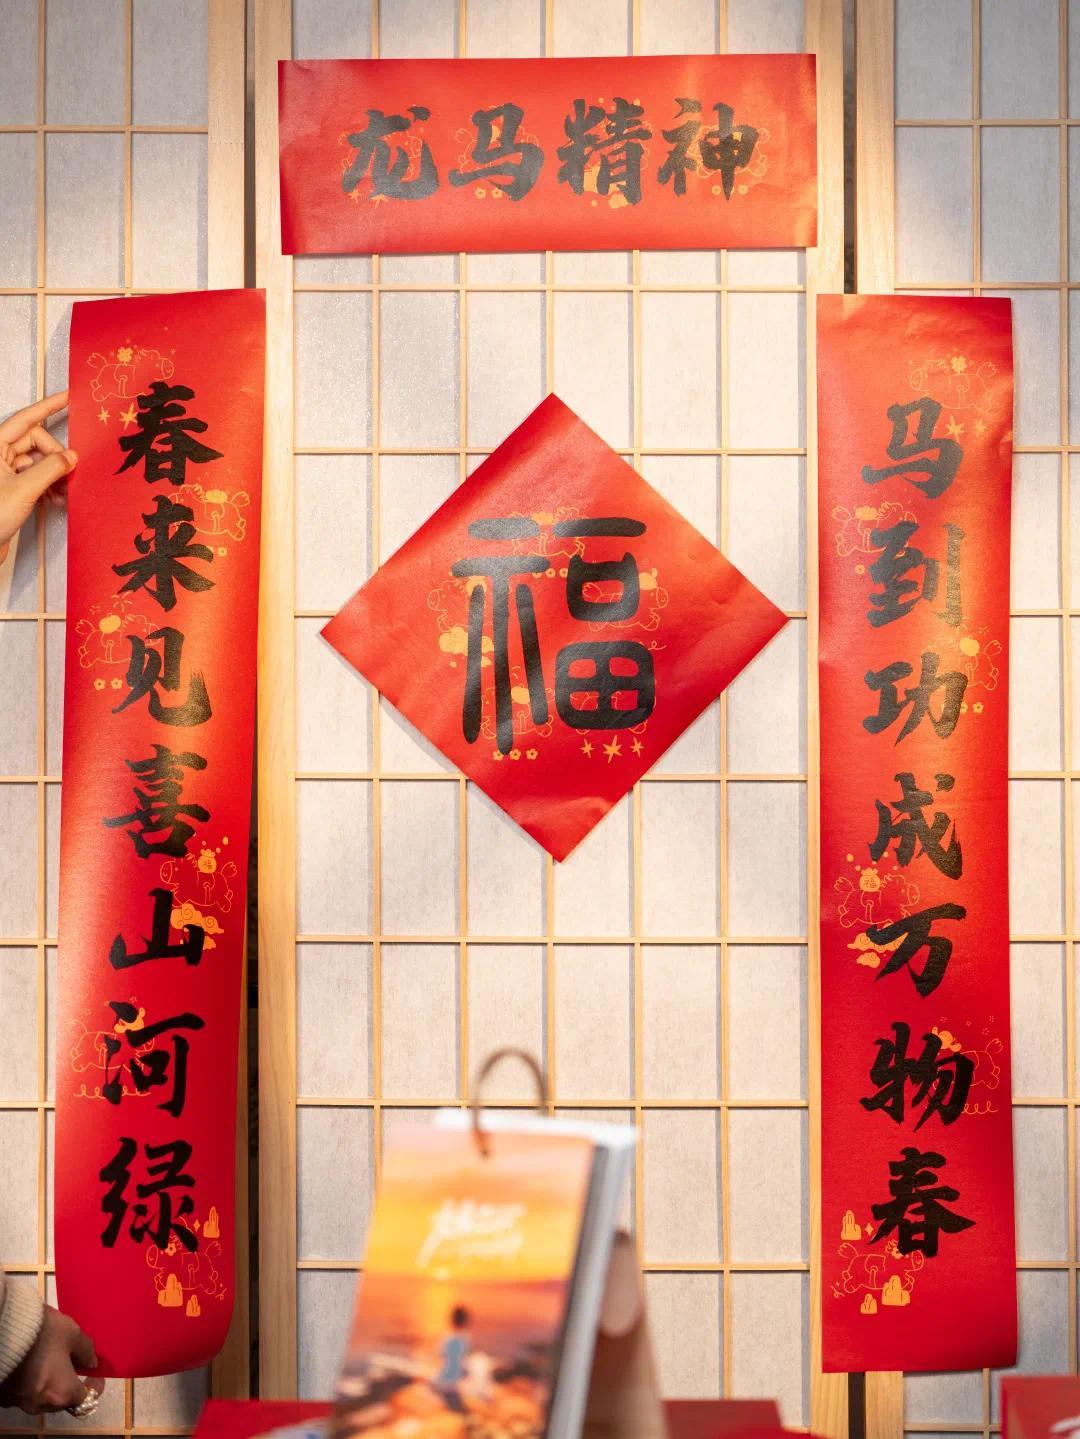 龙马精神
春来见喜山河绿
福
马到功成万物春
福
福